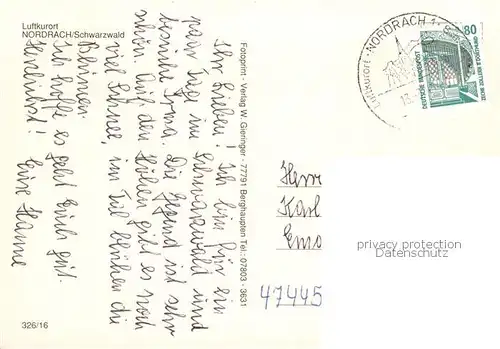 Luftkurort
NORDRACH/Schwarzwald
Ihr Lieben! Ich bin für ein
paar Tage im Schwarzwald und
besuche Irma. Die Gegend ist sehr
schön. Auf den Höhen gibt es noch
viel Schnee, im Tal blühen die
Blumen.
Ich hoffe es geht Euch gut.
Herzlichst! Eure Hanne
326/16
Fotoprint - Verlag W. Gieringer - 77791 Berghaupten Tel.: 07803 - 3631
Luftkurort · NORDRACH
80
DEUTSCHE BUNDESPOST
Herr
Karl
47445
privacy protection
Datenschutz